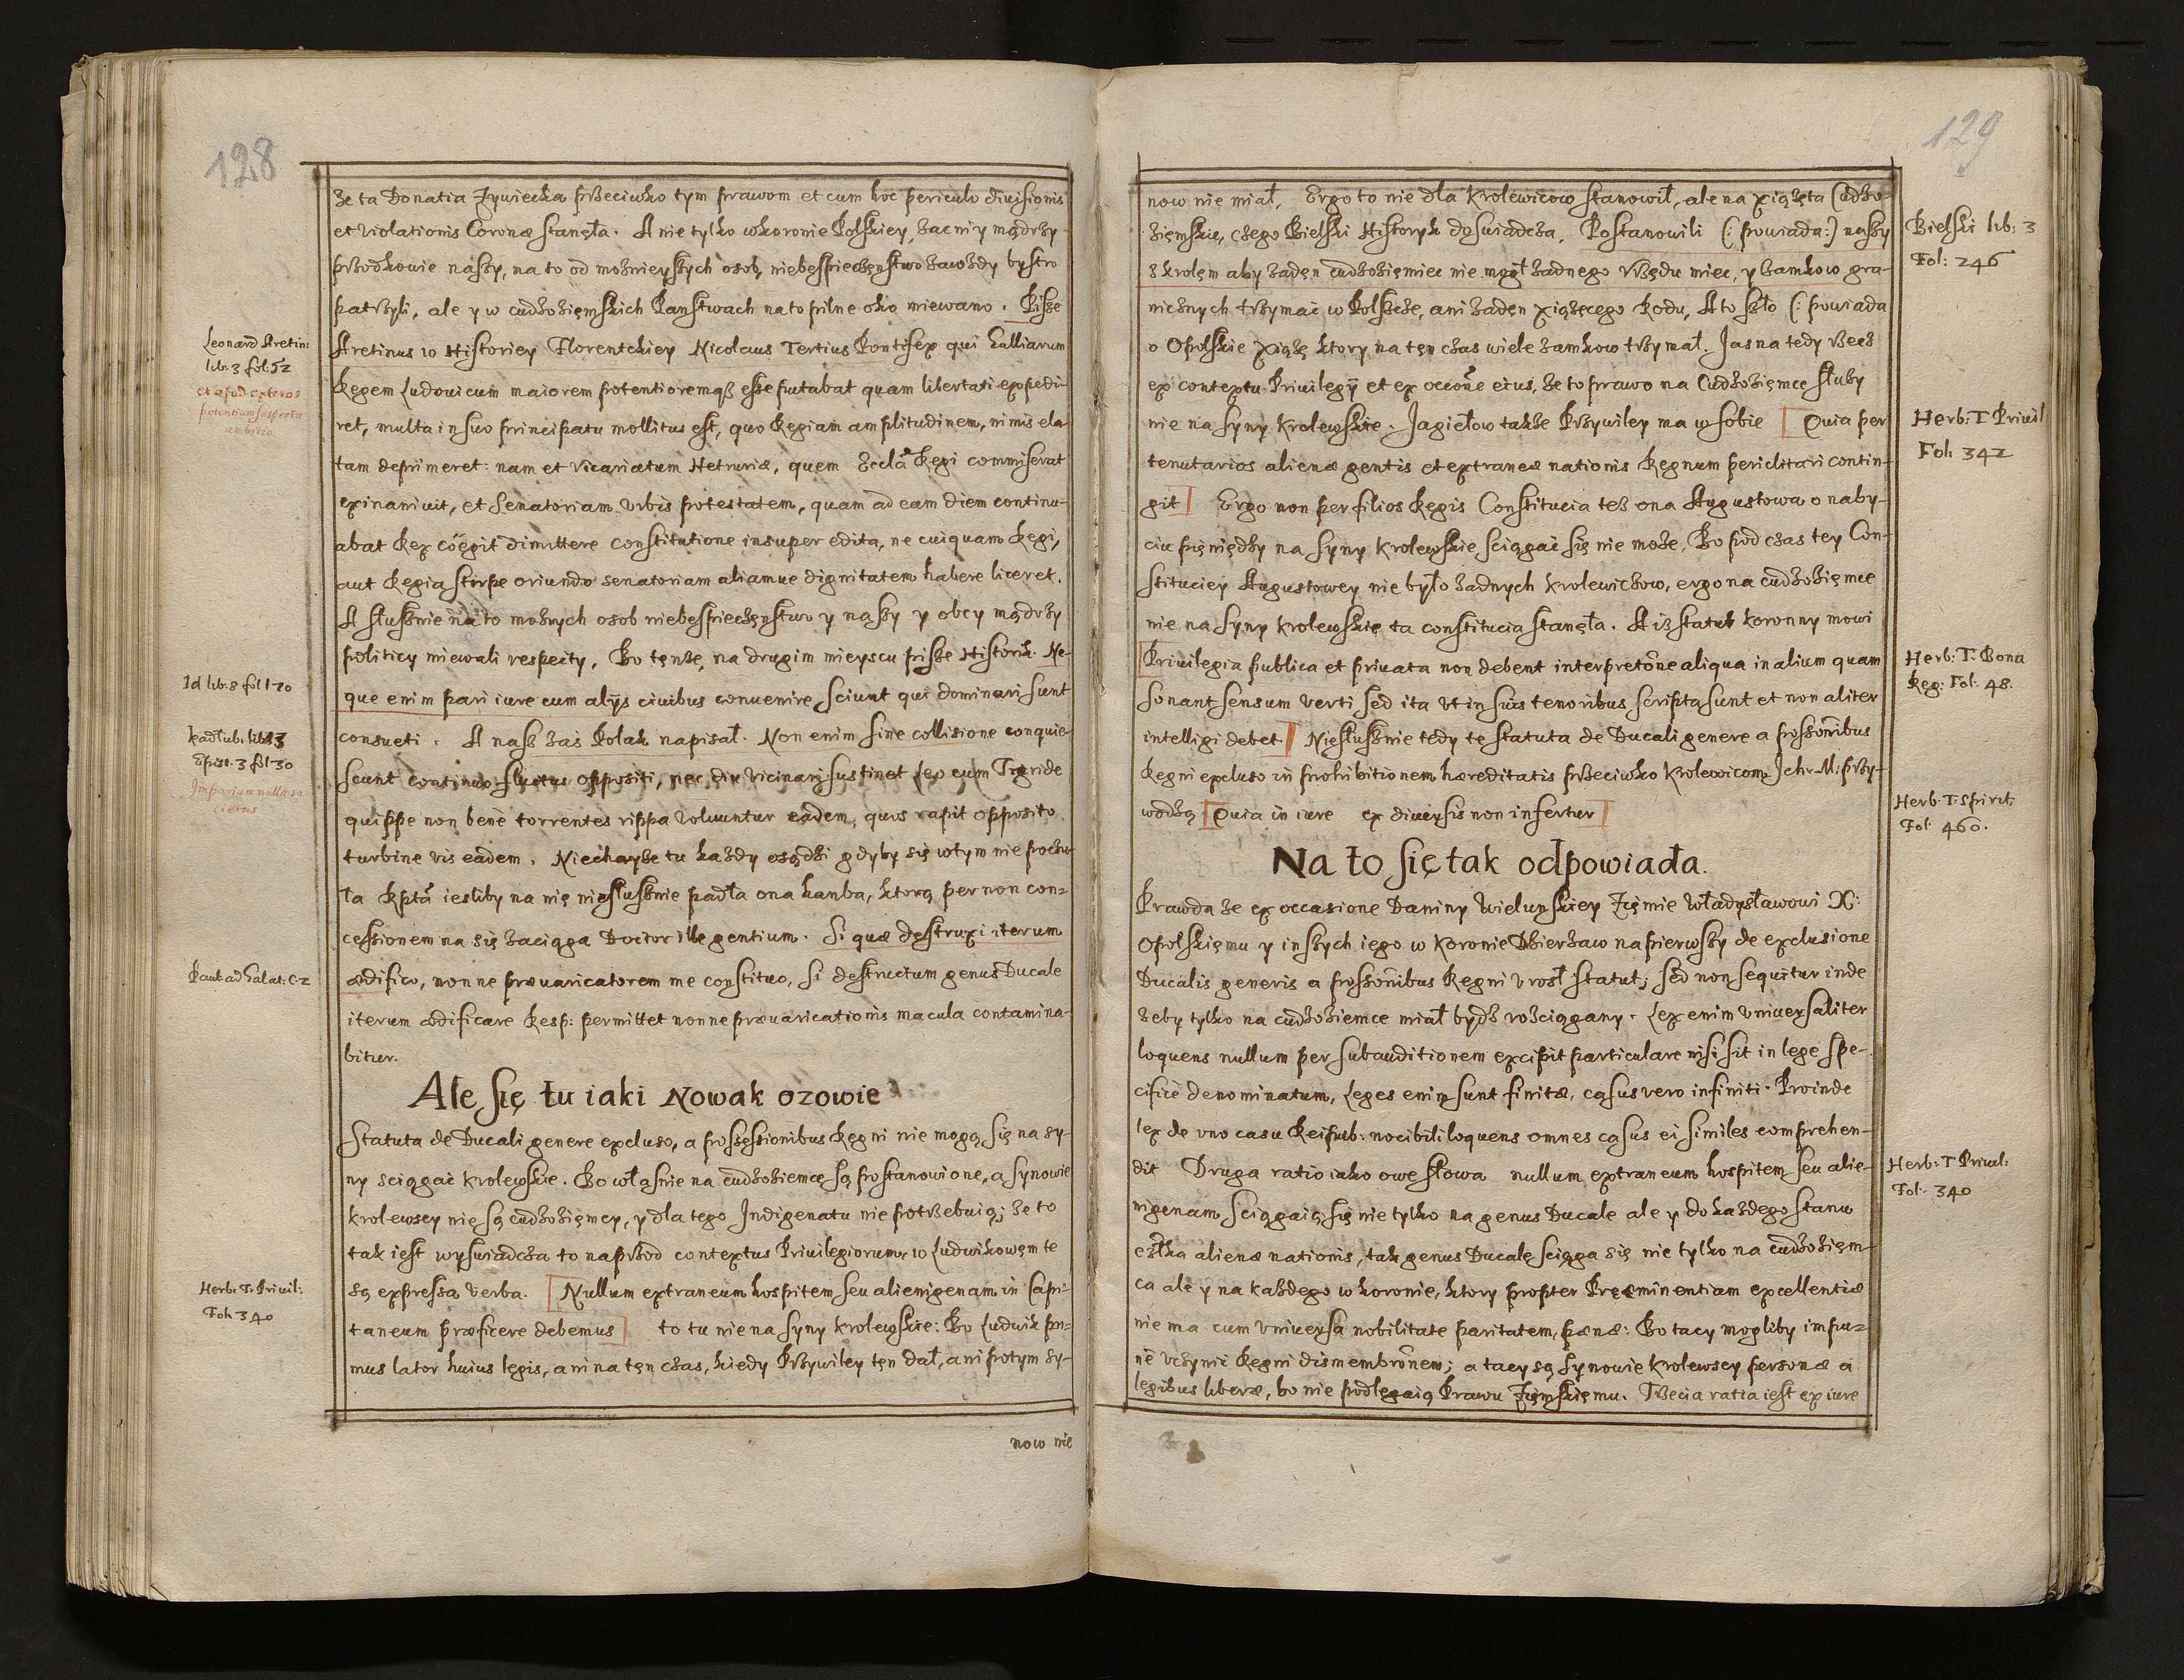 128
że ta Donatia Zywiecka przeciwko tym prawom et cum hoc periculo diuisionis
et violationis Coronæ stanęła. A nie tylko w koronie Polskiey, zacni y mądrzy
przodkowie naszy, na to od możnieyszych osob, niebespieczęnstwo zawżdy bystro
patrzyli, ale y w cudzoziemskich Panstwach na to pilne oko miewano. Pisze
Leonard Aretin:
lib: 3 fol: 52
et apud exteros
potentium suspecta
ambitio
Aretinus w Historiey Florentckiey Nicolaus Tertius Pontifex qui Galliarum
Regem Ludouicum maiorem potentioremqz esse putabat quam libertati expedi-
ret, multa in suo principatu mollitus est, quo Regiam amplitudinem, nimis ela-
tam deprimeret: nam et vicariatum Hetruriæ, quem Eccla Regi commiserat
exinaniuit, et Senatoriam vrbis potestatem, quam ad eam diem continu-
abat Rex coëgit dimittere constitutione insuper edita, ne cuiquam Regi,
aut Regia stirpe oriundo senatoriam aliamue dignitatem habere liceret.
A słusznie na to możnych osob niebespieczęnstwo y naszy y obcy mądrzy
politicy miewali respecty. Bo tęnże, na drugim mieyscu pisze Historik. Ne-
Id lib: 8 fol 170
que enim pari iure cum alijs ciuibus conuenire sciunt qui dominari sunt
consueti. A nasz zaś Polak napisał. Non enim sine collisione conquie-
Kadłub: lib: 3
Epist: 3 fol 30
Imparium nulla so
cietas
scunt continuo fluctus oppositi, nec diu vicinari sustinet Leo cum Tigride
quippe non bene torrentes rippa voluuntur eadem, quos rapit opposito
turbine vis eadem. Niechayże tu każdy osądzi gdyby się w tym nie poczu-
ła Rptá iesliby na nię niesłusznie padła ona hanba, ktorą per non con-
cessionem na się zaciąga Doctor ille gentium. Si quæ destruxi iterum
Paul: ad Galat: c. 2
ædifico, nonne præuaricatorem me constituo, si destructum genus Ducale
iterum ædificare Resp: permittet nonne præuaricationis macula contamina-
bitur.
Ale się tu iaki Nowak ozowie
Statuta de Ducali genere excluso, a possessionibus Regni nie mogą się na sy-
ny sciągać krolewskie. Bo własnie na cudzoziemce są postanowione, a synowie
krolewscy nie są cudzoziemcy, y dla tego Indigenatu nie potrzebuią; że to
tak iest wyswiadcza to naprzod contextus Priuilegiorum, w Ludwikowęm te
są expressa verba. Nullum extraneum hospitem seu alienigenam in Capi-
Herb: T: Priuil:
Fol: 340
taneum præficere debemus to tu nie na syny krolewskie: Bo Ludwik pri-
mus lator huius legis, ani na tęn czas, kiedy Przywiley tęn dał, ani potym sy-
now nie
129
now nie miał, Ergo to nie dla Krolewicow stanowił, ale na xiążęta Cudzo-
Bielski lib: 3
Fol: 246
ziemskie, czego Bielski Historyk doswiadcza. Postanowili (: powiada:) naszy
z krolęm aby żadęn cudzoziemiec nie mogł żadnego Vrzędu miec, y zamkow gra-
nicznych trzymać w Polszcze, ani żadęn xiążęcego Rodu, A to szło (: powiada
o Opolskie xiążę ktory na tęn czas wiele zamkow trzymał. Jasna tedy rzecz
ex contextu Priuilegij et ex occone eius, że to prawo na Cudzoziemce służy
nie na syny krolewskie. Jagiełow także Przywiley ma w sobie Quia per
Herb: T Priuil
Fol: 342
tenutarios alienæ gentis et extraneæ nationis Regnum periclitari contin-
git Ergo non per filios Regis Constitucia też ona Augustowa o naby-
ciu pieniędzy na syny krolewskie sciągać się nie może, Bo pod czas tey Con-
stituciey Augustowey nie było żadnych krolewiczow, ergo na cudzoziemce
nie na syny krolewskie ta constitucia stanęła. A iż statut koronny mowi
Priuilegia publica et priuata non debent interpretone aliqua in alium quam
Herb: T: Bona
Reg: Fol: 48.
sonant sensum verti sed ita vt in suis tenoribus scripta sunt et non aliter
intelligi debet Niesłusznie tedy te statuta de Ducali genere a possonibus
Regni excluso in prohibitionem hæreditatis przeciwko Krolewicom Ich M: przy-
wodzą Quia in iure ex diuersis non infertur
Herb: T: Spirit:
Fol 460.
Na to się tak odpowiada.
Prawda że ex occasione Daniny Wielunskiey Zięmie Władysławowi X:
Opolskięmu y inszych iego w Koronie Dzierżaw napierwszy de exclusione
Ducalis generis a possonibus Regni vrosł statut; sed non sequitur inde
żeby tylko na cudzoziemce miał bydz rosciągany. Lex enim vniuersaliter
loquens nullum per subauditionem excipit particulare nisi sit in lege spe-
cifice denominatum, Leges enim sunt finitæ, casus vero infiniti. Proinde
lex de vno casu Reipub: nocibili loquens omnes casus ei similes comprehen-
dit Druga ratio iako owe słowa nullum extraneum hospitem seu alie-
Herb: T Priuil:
Fol: 340
nigenam sciągaią się nie tylko na genus Ducale ale y do każdego stanu
człka alienæ nationis, tak genus Ducale sciąga się nie tylko na cudzoziem-
ca ale y na każdego w koronie, ktory propter Præeminentiam excellentiæ
nie ma cum vniuersa nobilitate paritatem, pænæ: Bo tacy mogliby impu-
ne vczynic Regni dismembronem; a tacy są synowie krolewscy personæ a
legibus liberæ, bo nie podlegaią Prawu Zięmskięmu. Trzecia ratia iest ex iure